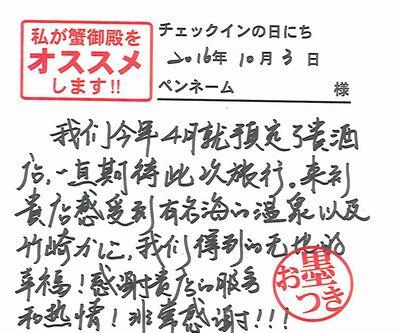 私が蟹御殿を
オススメ
します!!
チェックインの日にち
2016年10月3日
ペンネーム 様
我们今年4月就预定了贵酒
店,一直期待此次旅行。来到
貴店感受到有名海的温泉以及
竹崎かに,我们得到的无比的
幸福!感谢贵店的服务
和热情!非常感谢!!!
お墨つき